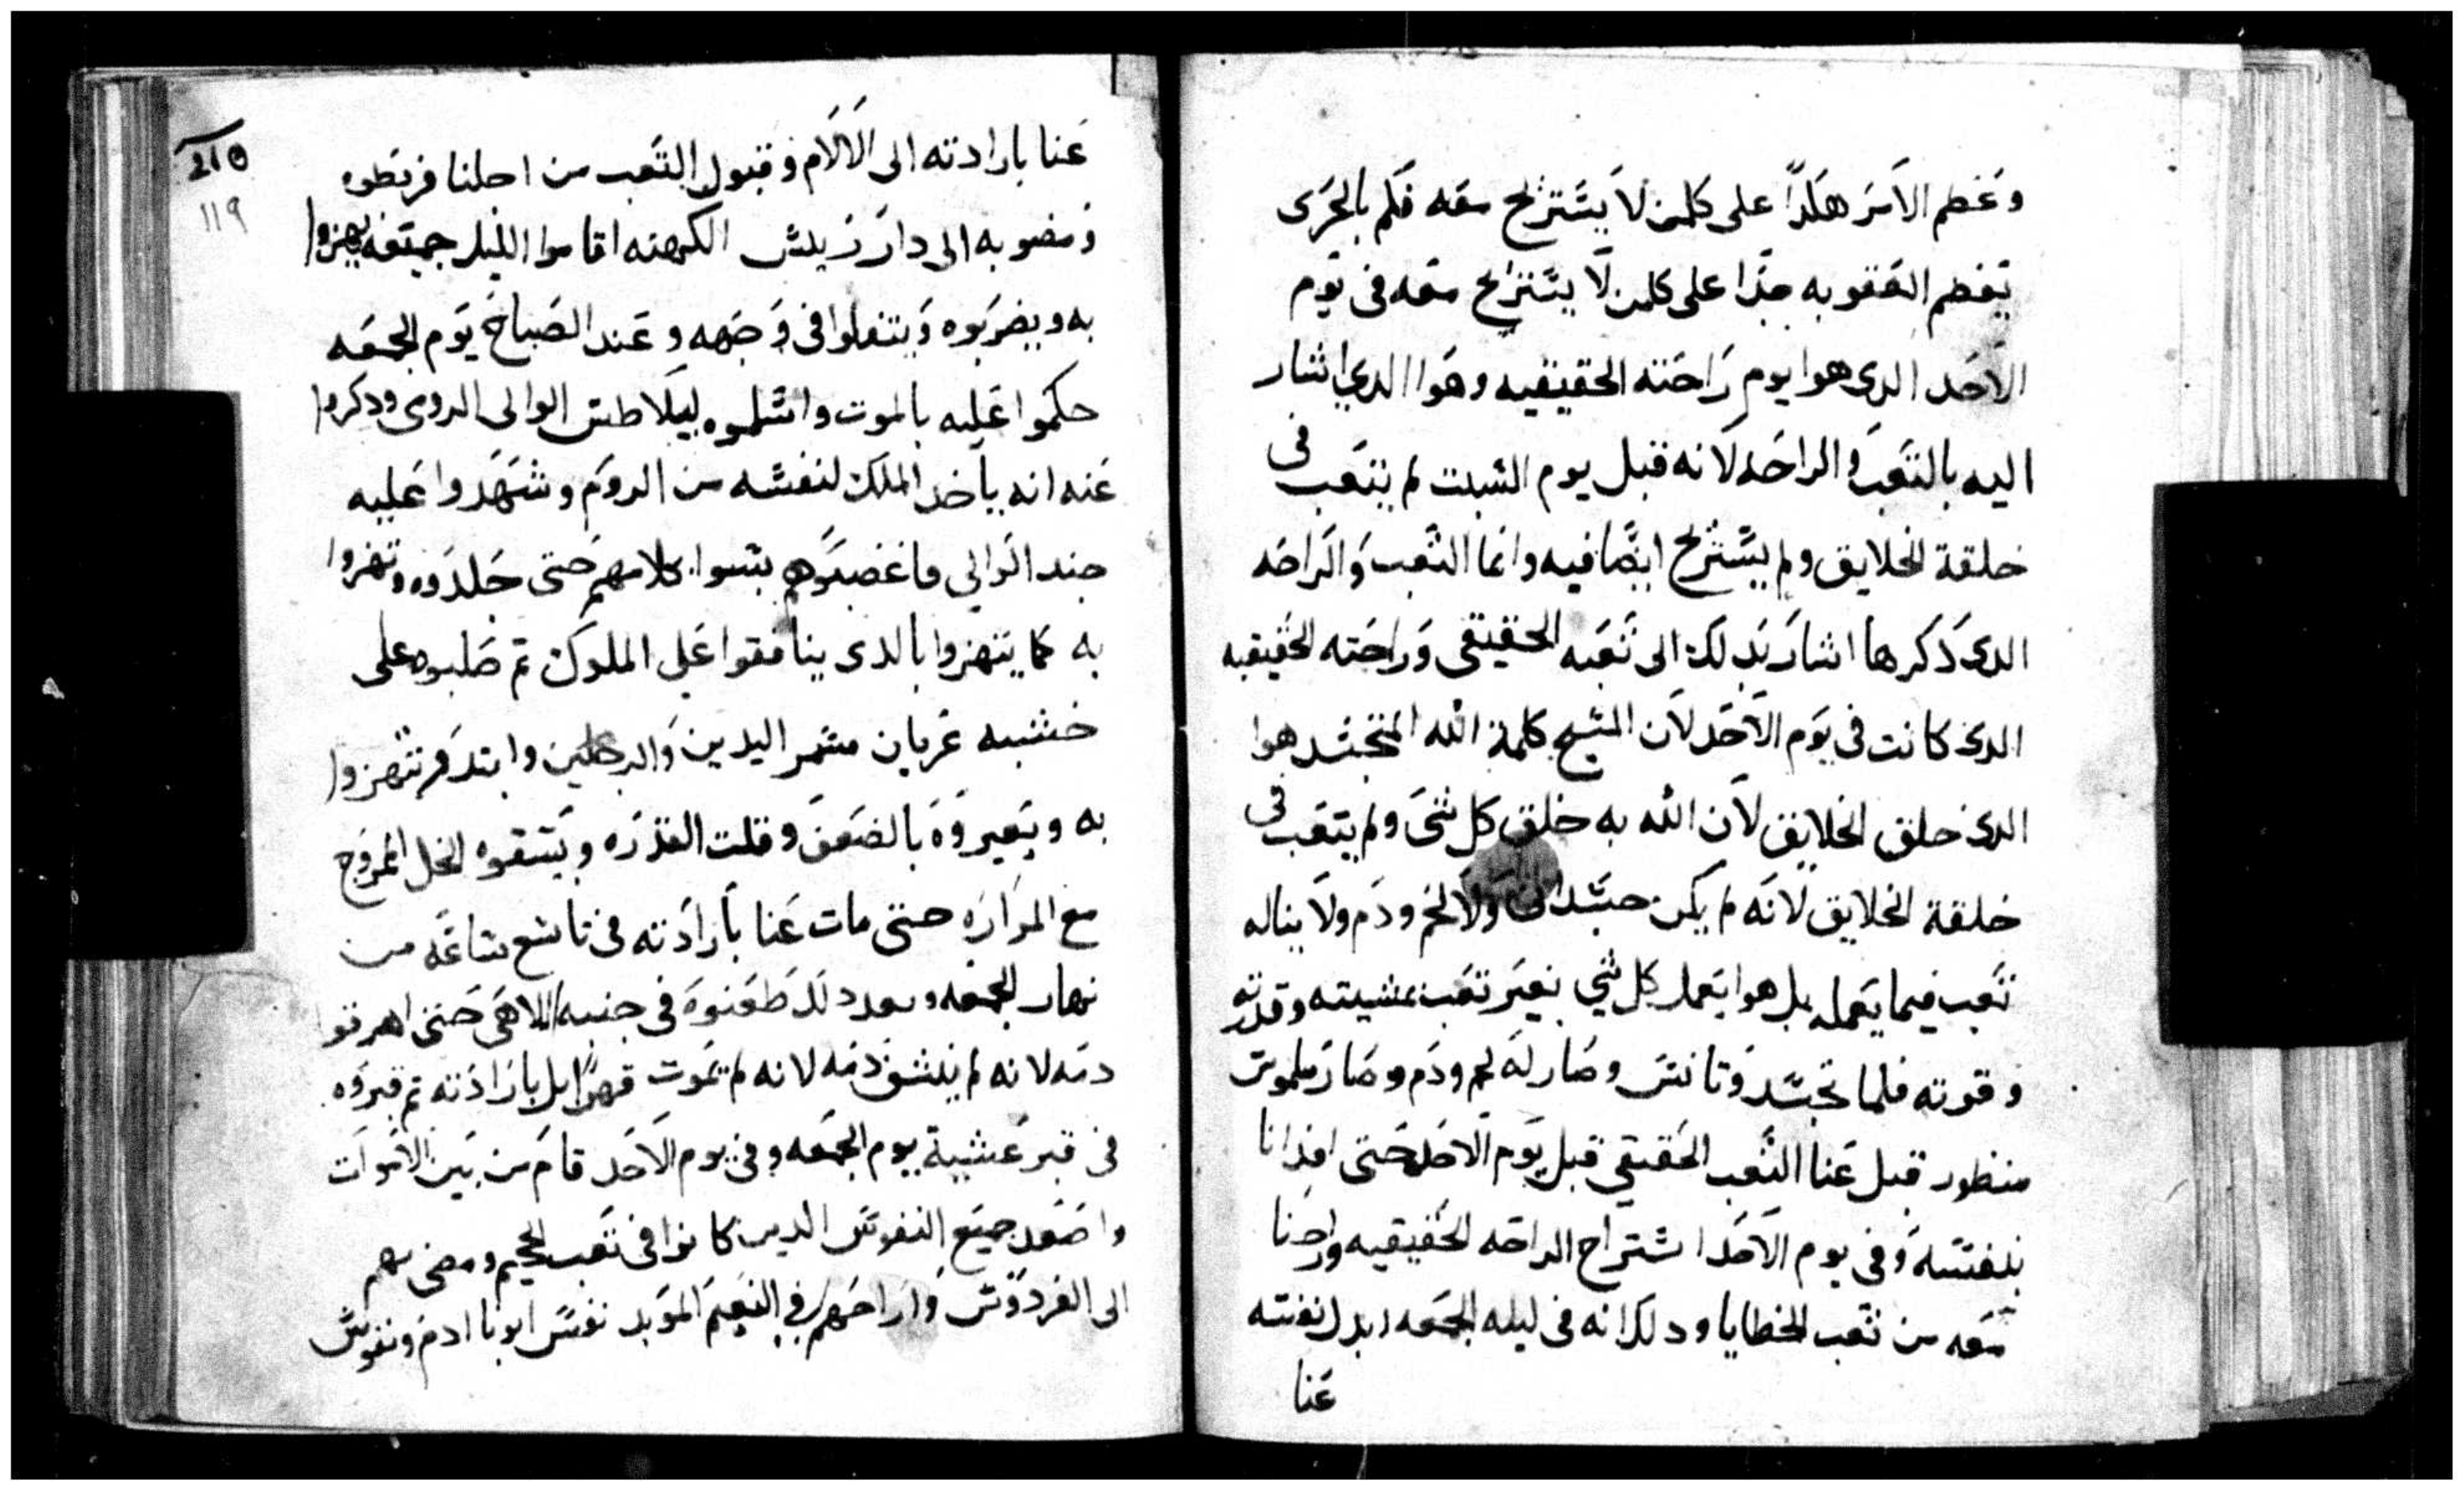 وعظم الامر هكدا على كلمن لا يستريح معه فكم بالحرى
تعظم العقوبه جدا على كلمن لا يستريح معه فى يوم
الاحد الدى هوا يوم راحته الحقيقيه وهوا الدي اشار
اليه بالتعب والراحه لانه قبل يوم السبت لم يتعب فى
خلقة الخلايق ولم يستريح ايضا فيه وانما التعب والراحه
الدى دكرها اشار بدلك الى تعبه الحقيقى وراحته الحقيقيه
الدى كانت فى يوم الاحد لان المسيح كلمة الله المتجسد هوا
الدى خلق الخلايق لان الله به خلق كل شى ولم يتعب فى
خلقة الخلايق لانه لم يكن جسدانى ولا لحم ودم ولا يناله
تعب فيما يعمله بل هوا يعمل كل شي بغير تعب بمشيته وقدرته
وقوته فلما تجسد وتانس وصار له لحم ودم وصار ملموس
منظور قبل عنا التعب الحقيقي قبل يوم الاحد حتى افدانا
بنفسه وفى يوم الاحد استراح الراحه الحقيقيه وراحنا
معه من تعب الخطايا ودلك انه فى ليله الجمعه ابدل نفسه
عنا
210
119
عنا بارادته الى الالام وقبول التعب من اجلنا فربطوه
ومضو به الى دار ريس الكهنه اقاموا الليل جميعه يهزوا
به ويضربوه ويتفلوا فى وجهه وعند الصباح يوم الجمعه
حكموا عليه بالموت واسلموه ليلاطس الوالى الرومى ودكروا
عنه انه ياخد الملك لنفسه من الروم وشهدوا عليه
جند الوالي فاغضبوهم بسوا كلامهم حتى جلدوه وتهزوا
به كما يتهزوا بالدى ينافقوا على الملوك تم صلبوه على
خشبه عريان مسمر اليدين والرجلين وابتدو يتهزوا
به ويعيروه بالضعف وقلت القدره ويسقوه الخل الممزوج
مع المراره حتى مات عنا بارادته فى تاسع ساعه من
نهار الجمعه وبعد دلك طعنوه فى جنبه الالاهى حتى اهرقوا
دمه لانه لم ينشف دمه لانه لم يموت قهرا بل بارادته تم قبروه
فى قبر عشية يوم الجمعه وفى يوم الاحد قام من بين الاموات
واصعد جميع النفوس الدين كانوا فى تعب الجحيم ومضى بهم
الى الفردوس واراحهم في النعيم الموبد نفس ابونا ادم ونفوس